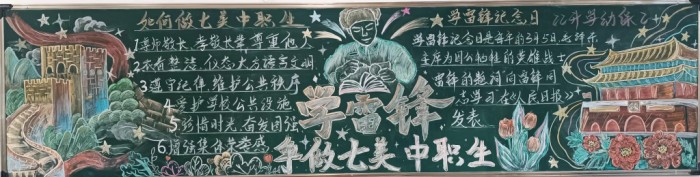 如何做七美中职生
1尊师敬长,孝敬长辈,尊重他人
2衣着整洁,仪态大方语言文明
3遵守纪律,维护公共秩序
4爱护学校公共设施
5珍惜时光,奋发图强
6增强集体荣誉感
学雷锋
争做七美中职生
学雷锋纪念日
学雷锋纪念日是每年的3月5日,毛泽东
主席为因公牺牲的英雄战士
雷锋的题词向雷锋同
志学习在《人民日报》上
发表